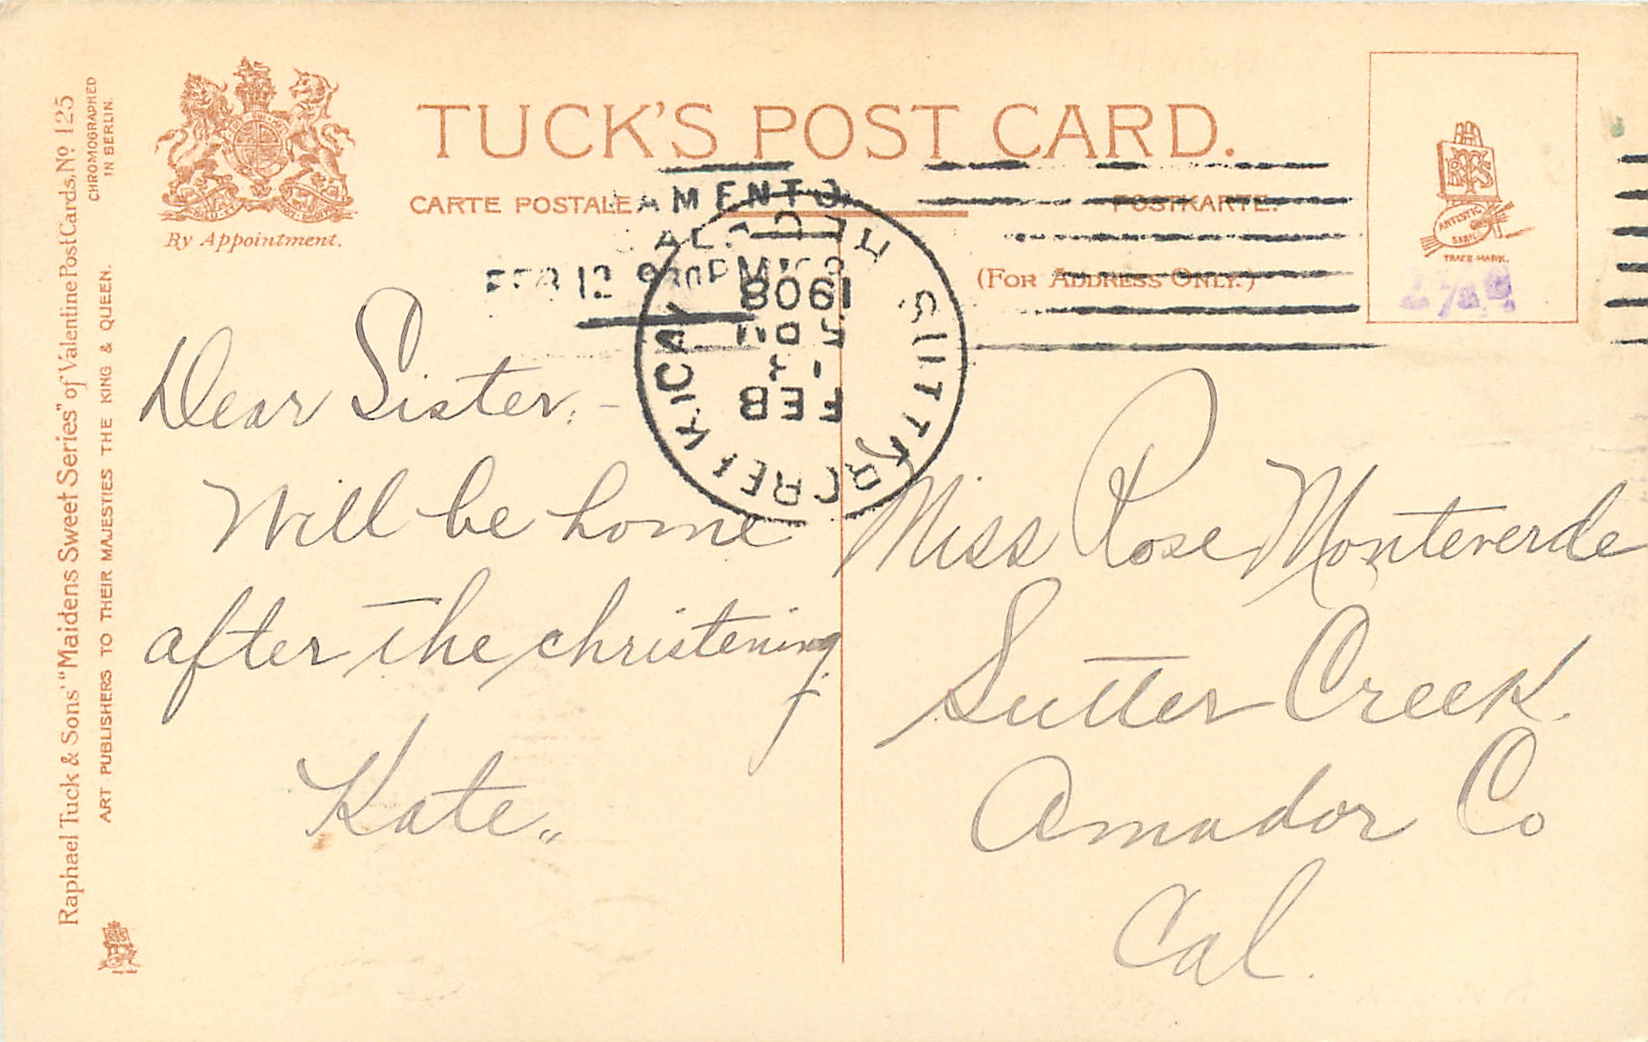 TUCK'S POST CARD.
CARTE POSTALE
POSTKARTE.
(FOR ADDRESS ONLY.)
By Appointment.
Raphael Tuck & Sons' "Maidens Sweet Series" of Valentine PostCards. No 125
CHROMOGRAPHED
IN BERLIN.
ART PUBLISHERS TO THEIR MAJESTIES THE KING & QUEEN.
ARTISTIC
TRADE MARK.
AMENTO
FEB 12
SUTTER CREEK
FEB
1908
Dear Sister,-
Will be home
after the christening.
Kate"
Miss Rose Monteverde
Sutter Creek.
Amador Co
Cal.